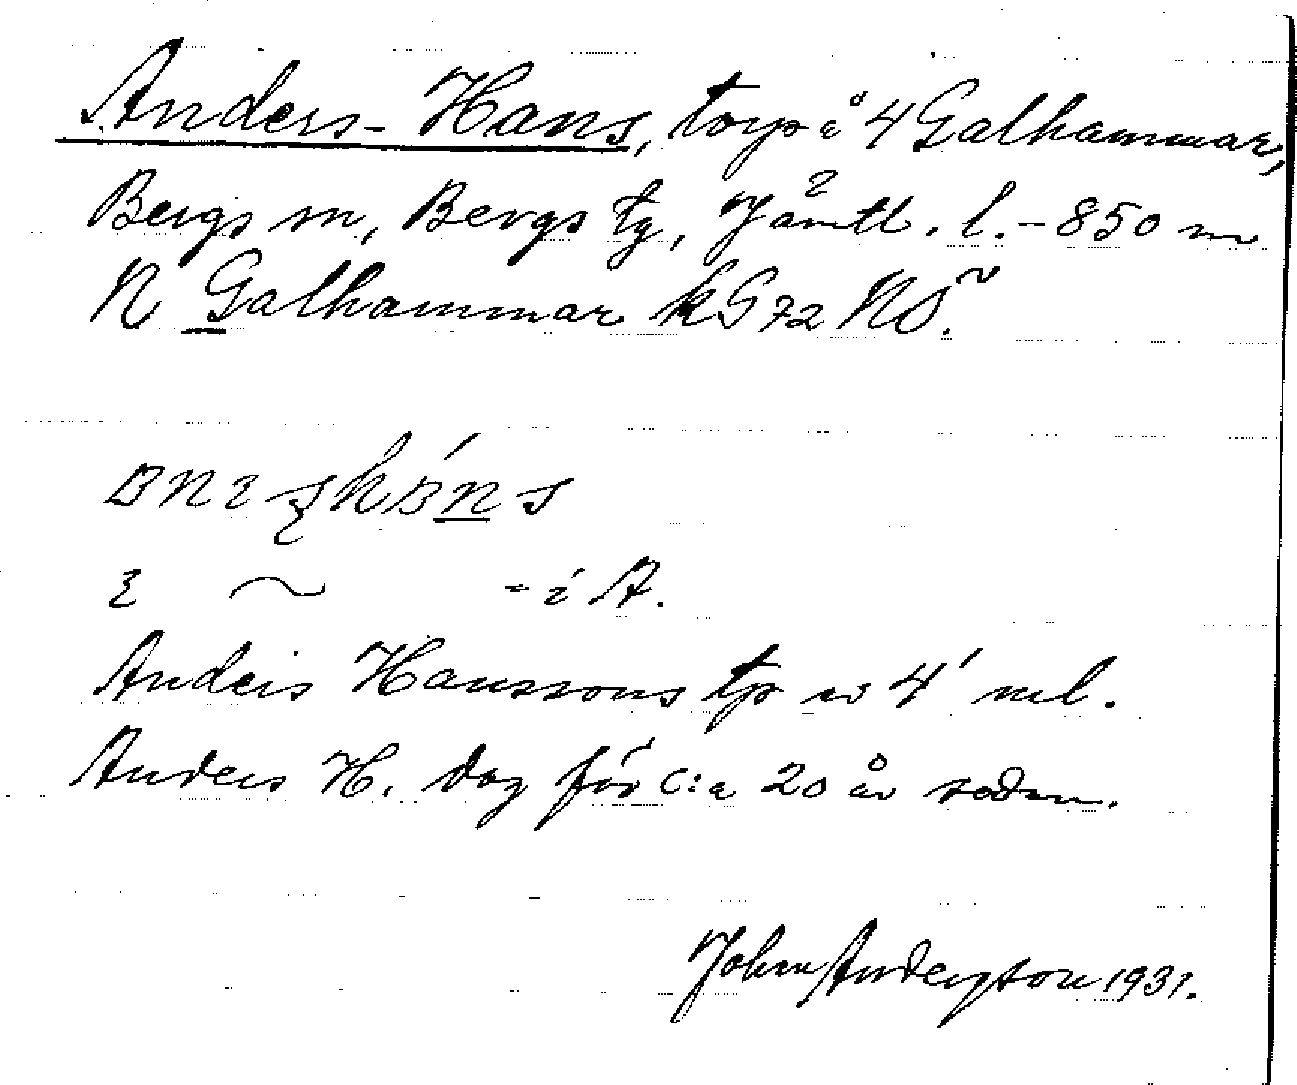 Anders-Hans, torp å 4 Galhammar,
Bergs sn, Bergs tg, Jämtl. l. - 850 m
N Galhammar kG 72 NÖ.
- i A.
Anders Hanssons tp av 4 ml.
Anders H. dog för c:a 20 år sedan.
John Anderson 1931.